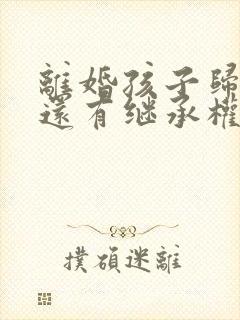 離婚孩子歸
還有继承權
撲碩迷離